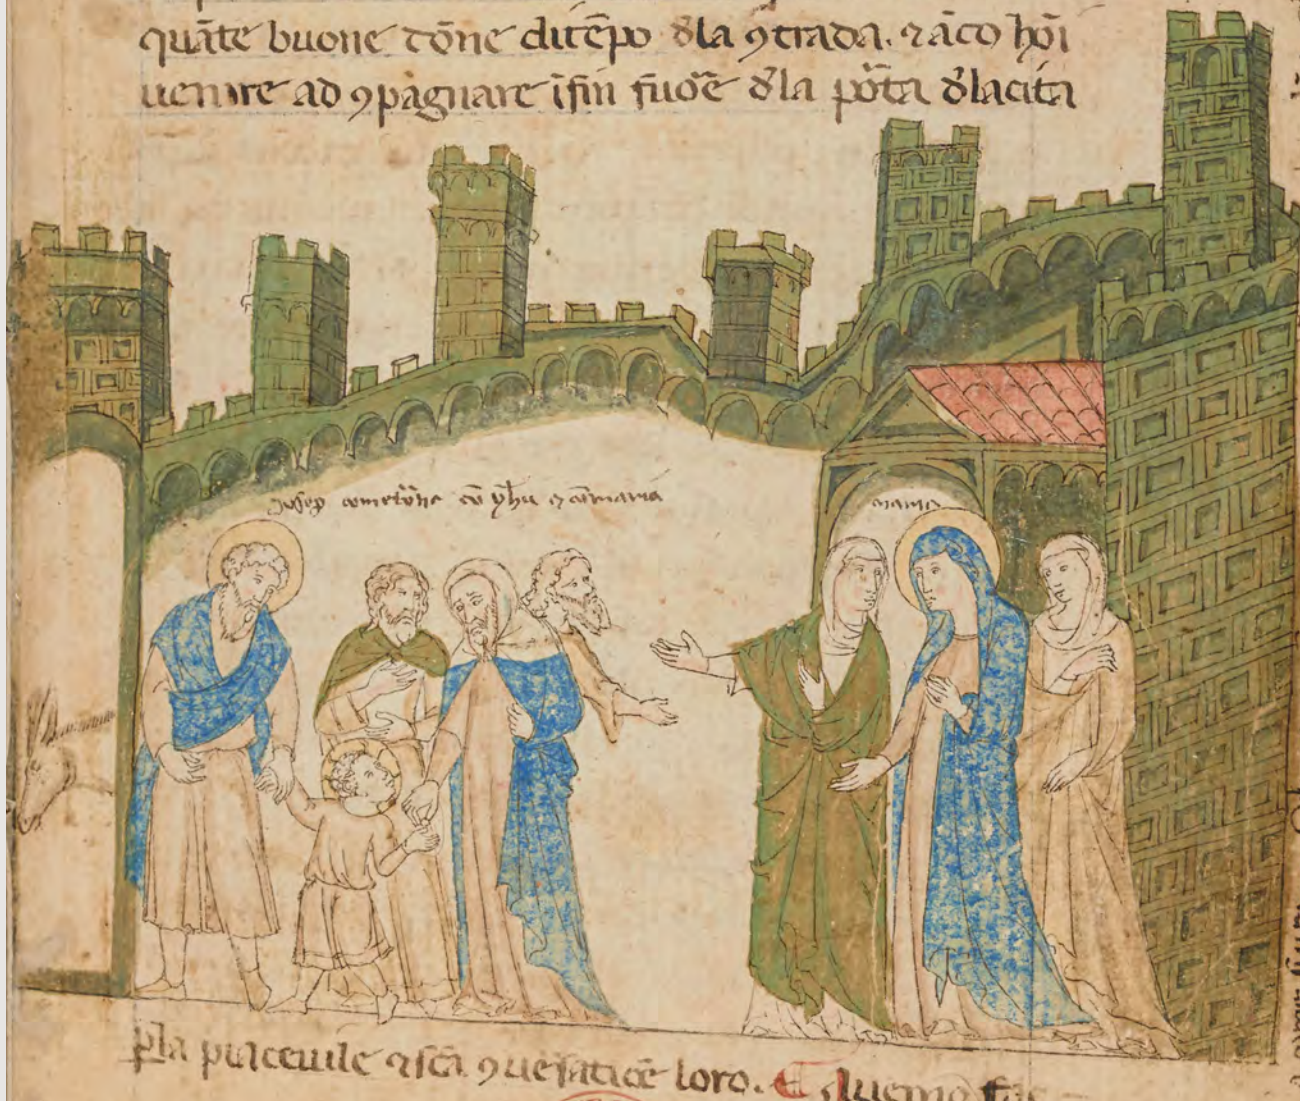 quāte buone dōne di tēpo dla ꝯtrada. ⁊ āco hōi
uenire ad ꝯpagnare īfin fuoē dla pōta dla cita
Josep come tōne cū yħu ⁊ cū maria
maria
ꝑla piaceuile ⁊ scā ꝯuersatiōe loro. ¶